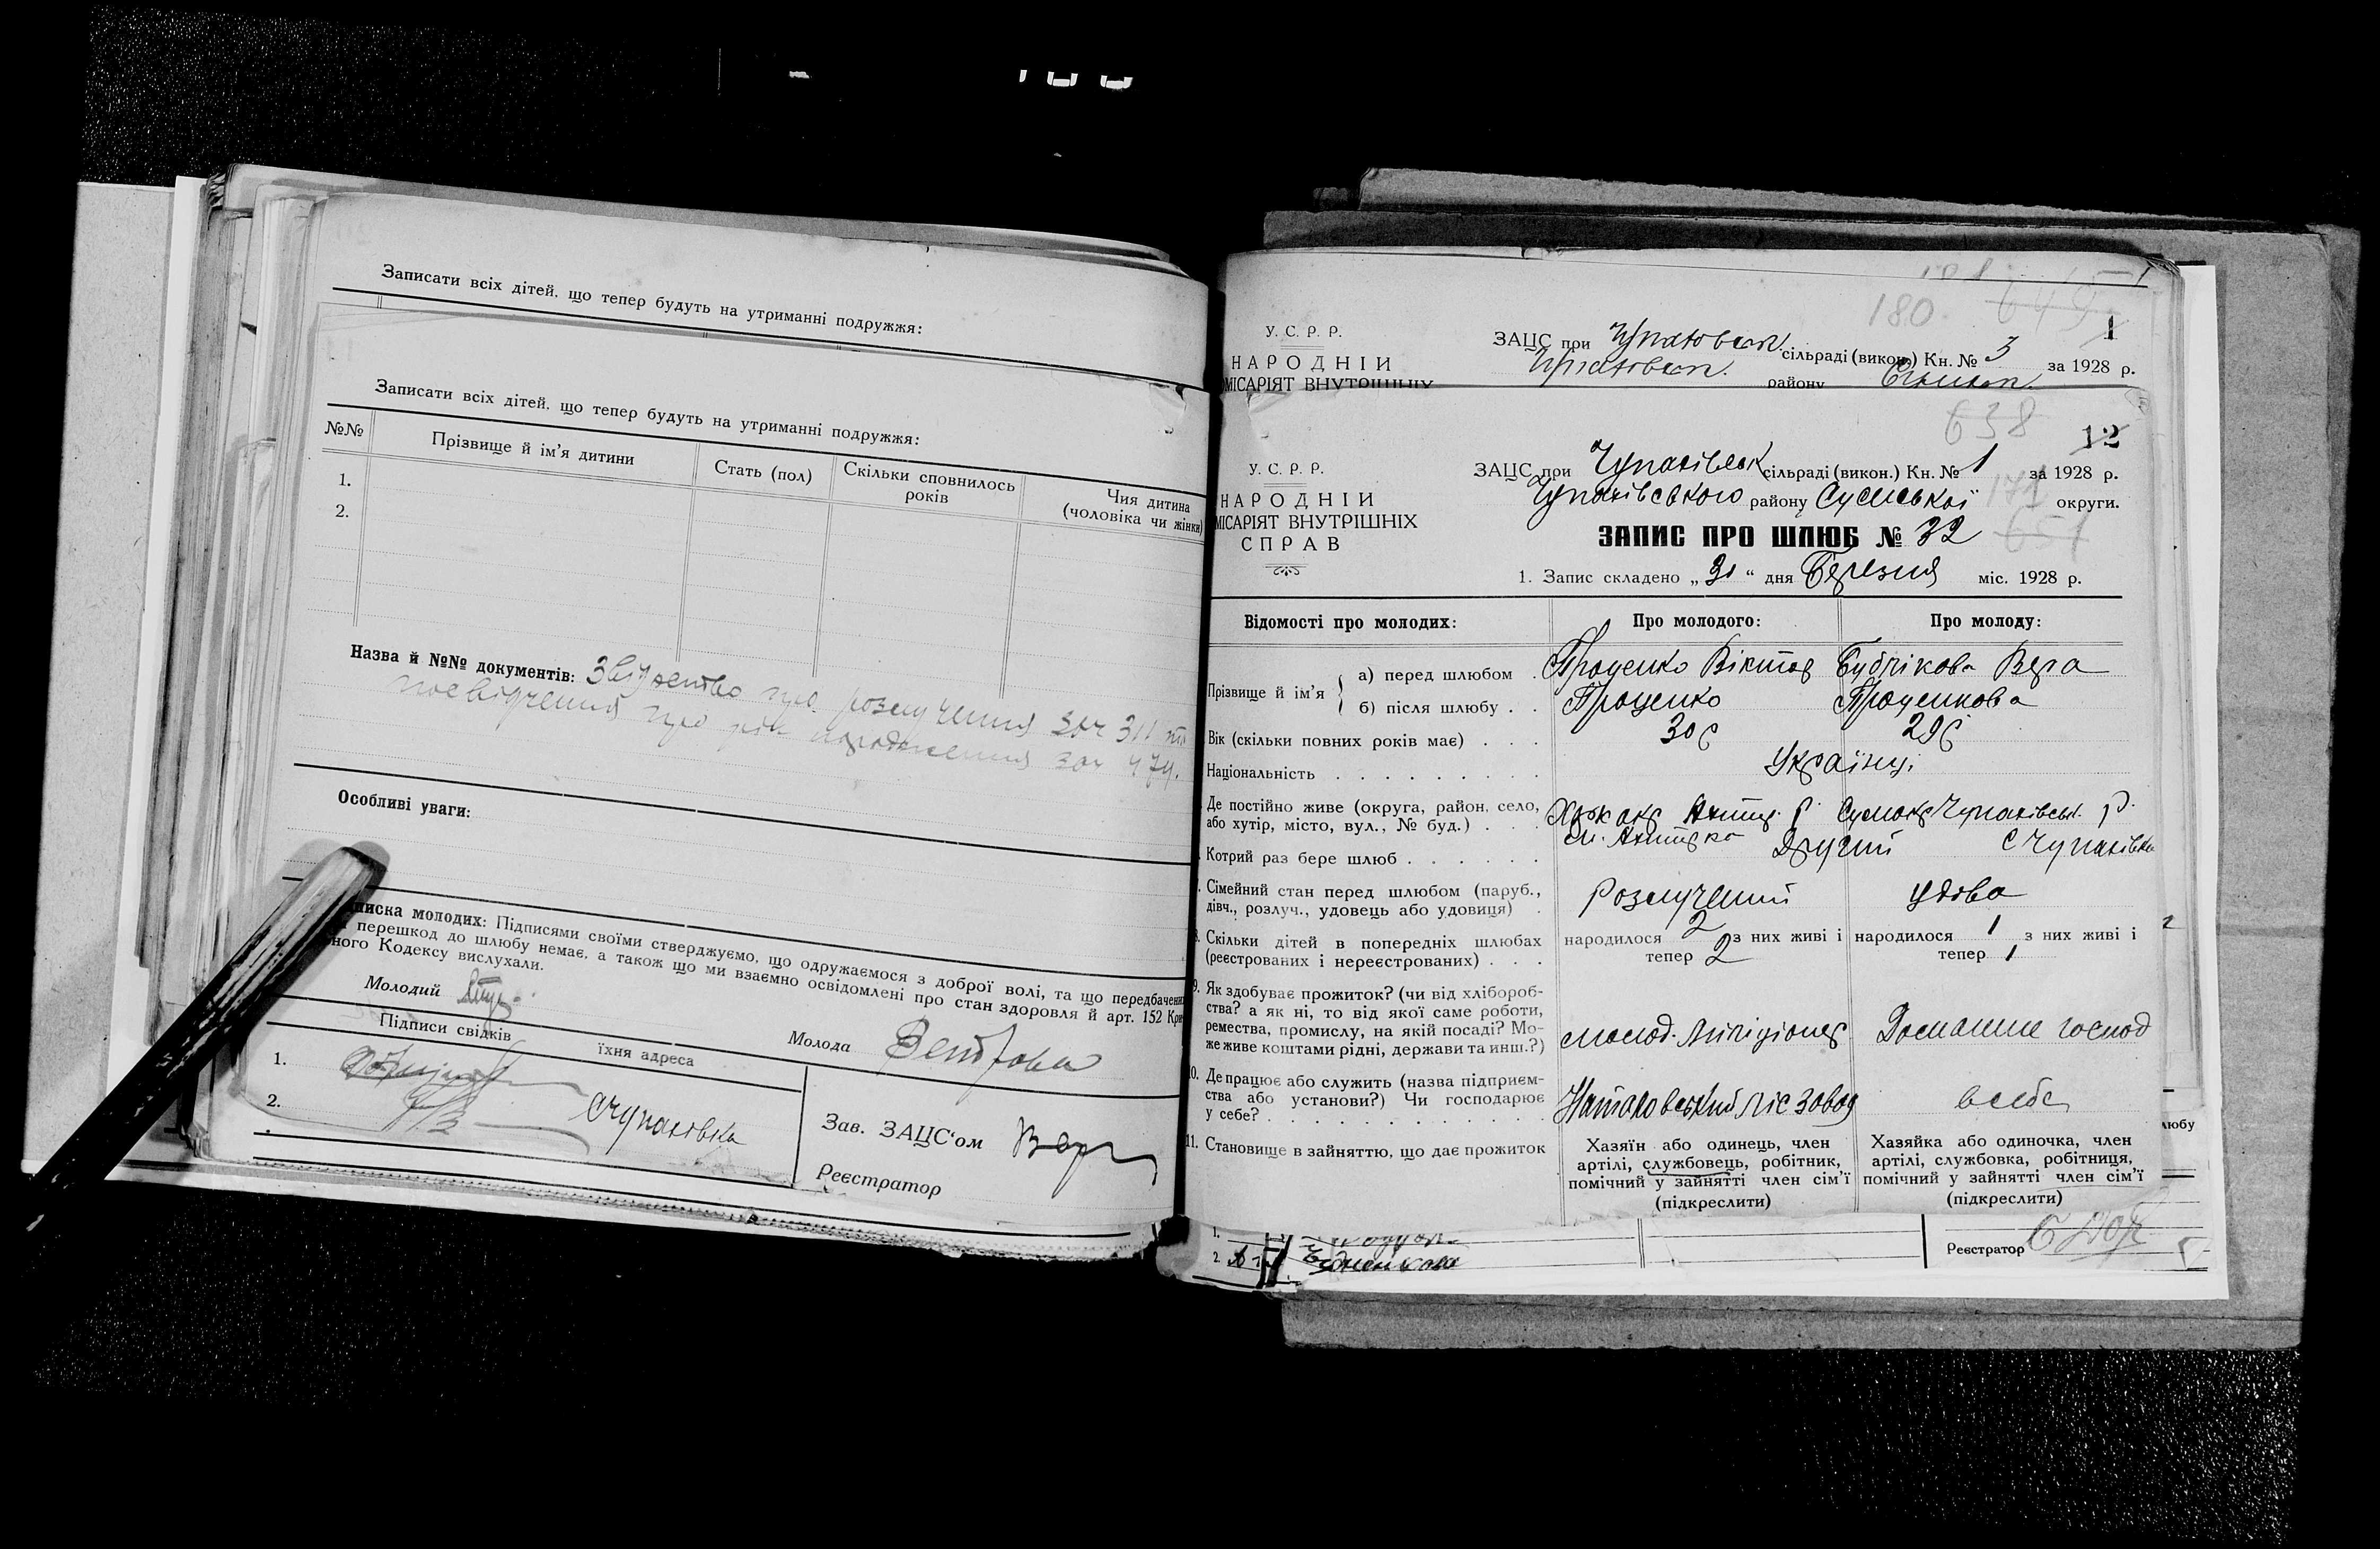 Записати всіх дітей, що тепер будуть на утриманні подружжя:
Записати всіх дітей, що тепер будуть на утриманні подружжя:
№№ Прізвище й ім'я дитини Стать (пол) Скільки сповнилось років Чия дитина (чоловіка чи жінки)
1.
2.
Назва й №№ документів: про розлучення зач 311 та
посвідчення про рік народження зач 474.
Особливі уваги:
писка молодих: Підписями своїми стверджуємо, що одружаємося з доброї волі, та що передбачених
перешкод до шлюбу немає, а також що ми взаємно освідомлені про стан здоровля й арт. 152 Кри
ного Кодексу вислухали.
Молодий
Молода
Підписи свідків їхня адреса
1.
2. с Чупахівка
Зав. ЗАЦС'ом
Реєстратор
180.
1
У. С. Р. Р.
НАРОДНІЙ
МІСАРІЯТ ВНУТРІШНІХ
ЗАЦС при сільраді (викон.) Кн. № 3 за 1928 р.
району
638
12
У. С. Р. Р.
НАРОДНІЙ
МІСАРІЯТ ВНУТРІШНІХ
СПРАВ
ЗАЦС при Чупахівськ сільраді (викон.) Кн. № 1 за 1928 р.
Чупахівського району Сумської округи.
ЗАПИС ПРО ШЛЮБ № 32
1. Запис складено „ 31 “ дня Березня міс. 1928 р.
Відомості про молодих: Про молодого: Про молоду:
Прізвище й ім'я а) перед шлюбом . Проценко Віктор Бублікова Вера
б) після шлюбу . . Проценко Проценкова
Вік (скільки повних років має) . . . 30 р 29 р
Національність . . . . . . . . . Українці
Де постійно живе (округа, район, село, Харк окр Ахтир. р. Сум окр Чупахівськ. р.
або хутір, місто, вул., № буд.) . . . м. Ахтирка с Чупахівка
Котрий раз бере шлюб . . . . . . Другий
Сімейний стан перед шлюбом (паруб., Розлучений удова
дівч., розлуч., удовець або удовиця) .
Скільки дітей в попередніх шлюбах народилося 2 з них живі і народилося 1 з них живі і
(реєстрованих і нереєстрованих) . . . тепер 2 тепер 1
9. Як здобуває прожиток? (чи від хлібороб-
ства? а як ні, то від якої саме роботи,
ремества, промислу, на якій посаді? Мо-
же живе коштами рідні, держави та инш.?) молод. Міліціонер Домашне господ
10. Де працює або служить (назва підприєм-
ства або установи?) Чи господарює
у себе? . . . . . . . . . . . . Ліс завод в себе
11. Становище в зайняттю, що дає прожиток
Хазяїн або одинець, член
артілі, службовець, робітник,
помічний у зайнятті член сім'ї
(підкреслити)
Хазяйка або одиночка, член
артілі, службовка, робітниця,
помічний у зайнятті член сім'ї
(підкреслити)
2
любу
1.
2.
Реєстратор